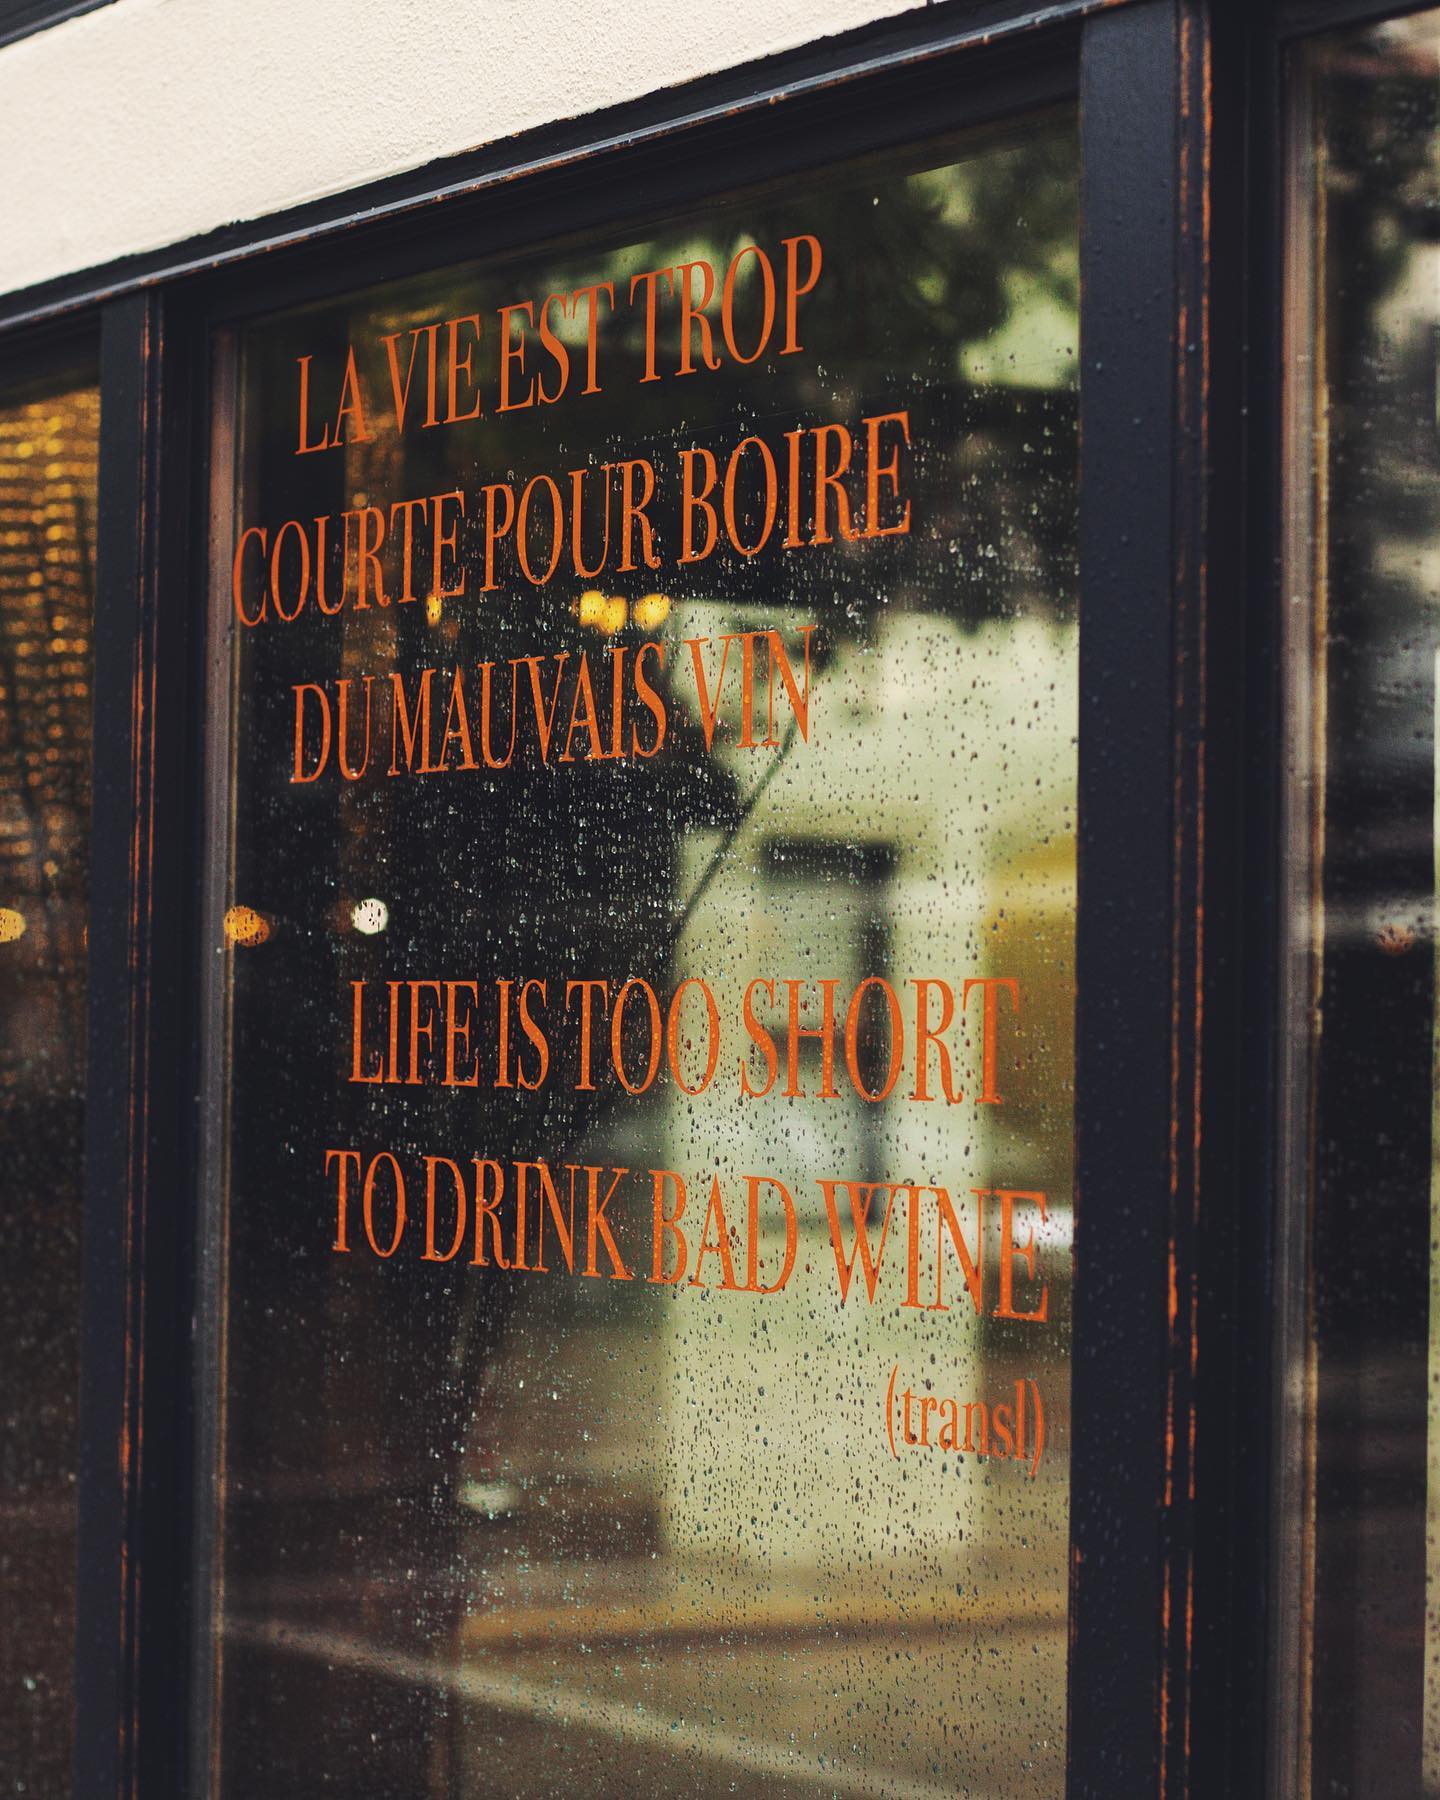 LA VIE EST TROP
COURTE POUR BOIRE
DU MAUVAIS VIN
LIFE IS TOO SHORT
TO DRINK BAD WINE
(transl)